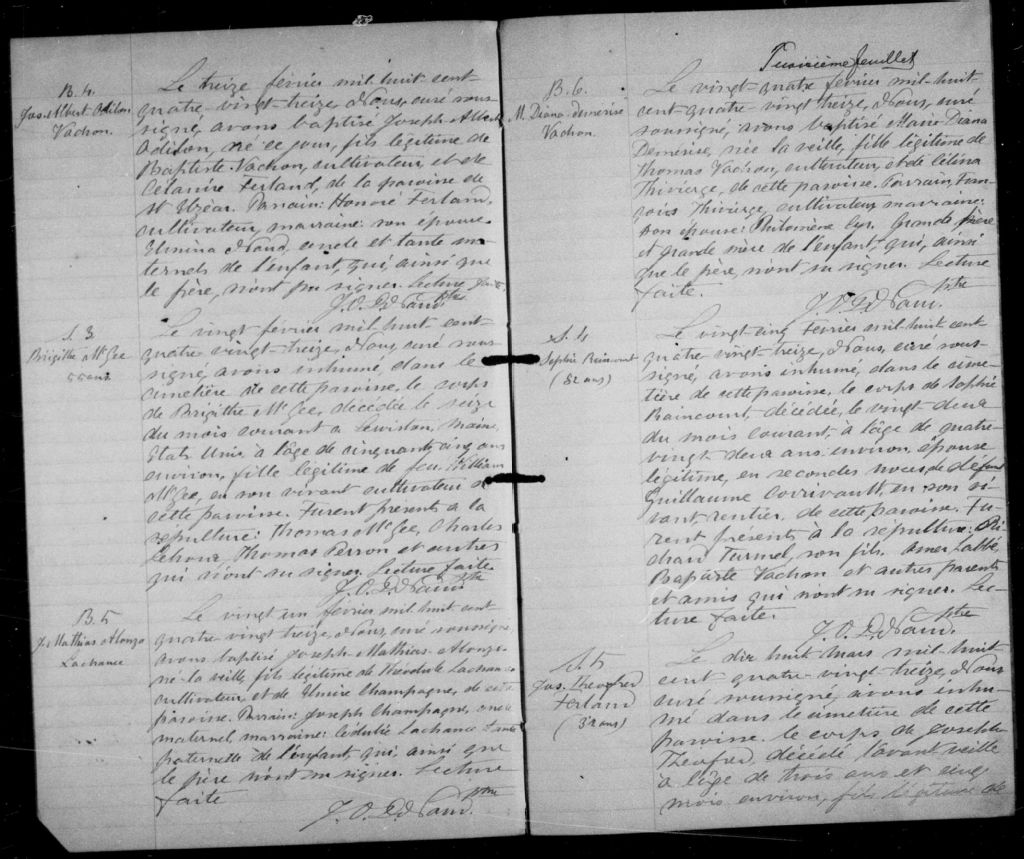 B. 4.
Jos. Albert Odilon
Vachon.
Le treize février mil-huit-cent-
quatre-vingt-treize, Nous, curé sous-
signé, avons baptisé Joseph Albert
Odilon, né ce jour, fils légitime de
Baptiste Vachon, cultivateur et de
Célanire Ferland, de la paroisse de
St Elzéar. Parrain: Honoré Ferland,
cultivateur, marraine: son épouse
Elmina oncle et tante ma-
ternels de l'enfant, qui, ainsi que
le père, n'ont pu signer. Lecture faite.
Ptre
S. 3
Brigithe McGee
55 ans
Le vingt février mil-huit-cent-
quatre-vingt-treize, Nous, curé sous-
signé, avons inhumé, dans le
cimetière de cette paroisse, le corps
de Brigithe McGee, décédée le seize
du mois courant à Lewiston, Maine,
Etats Unis, à l'âge de cinquante cinq ans
environ, fille légitime de feu William
McGee, en son vivant cultivateur de
cette paroisse. Furent présents à la
sépulture: Thomas McGee, Charles
Thomas Perron et autres
qui n'ont su signer. Lecture faite.
Ptre
B. 5
J. Mathias Alonzo
Lachance
Le vingt un février mil huit cent
quatre vingt treize, Nous, curé soussigné,
avons baptisé Joseph Mathias Alonzo
né la veille, fils légitime de Théodule Lachance
cultivateur, et de Elmire Champagne, de cette
paroisse. Parrain: Joseph Champagne, oncle
maternel, marraine: Lédulie Lachance tante
paternelle de l'enfant, qui, ainsi que
le père n'ont su signer. Lecture
faite
Ptre
Troisième feuillet
B. 6.
M. Diana Demérise
Vachon.
Le vingt-quatre février mil-huit-
cent-quatre-vingt treize, Nous, curé
soussigné, avons baptisé Marie Diana
Demérise, née la veille, fille légitime de
Thomas Vachon, cultivateur, et de Célina
Thivierge, de cette paroisse. Parrain, Fran-
çois Thivierge, cultivateur, marraine:
son épouse: Philomène Cyr. Grand père
et grande mère de l'enfant, qui, ainsi
que le père, n'ont su signer. Lecture
faite.
Ptre
S. 4
Sophie Raincourt
(82 ans)
Le vingt-cinq février mil-huit-cent-
quatre-vingt-treize, Nous, curé sous-
signé, avons inhumé, dans le cime-
tière de cette paroisse, le corps de Sophie
Raincourt, décédée, le vingt deux
du mois courant, à l'âge de quatre-
vingt deux ans environ, épouse
légitime, en secondes noces, de défunt
Guillaume Corrivault, en son vi-
vant, rentier, de cette paroisse. Fu-
rent présents à la sépulture: Ri-
chard Turmel, son fils, Omer Labbé,
Baptiste Vachon et autres parents
et amis qui n'ont su signer. Lec-
ture faite.
Ptre
S. 5
Jos. Theofred
Ferland
(3½ ans)
Le dix huit mars mil-huit
cent quatre-vingt treize, Nous
curé soussigné, avons inhu-
mé dans le cimetière de cette
paroisse, le corps de Joseph
Theofred, décédé l'avant veille
à l'âge de trois ans et cinq
mois environ, fils légitime de